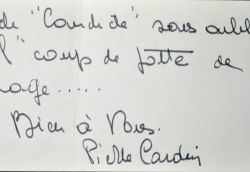 de "Candide" sans oubl
l'" coup de patte de
nage.....
Bien à Vous.
Pierre Cardin